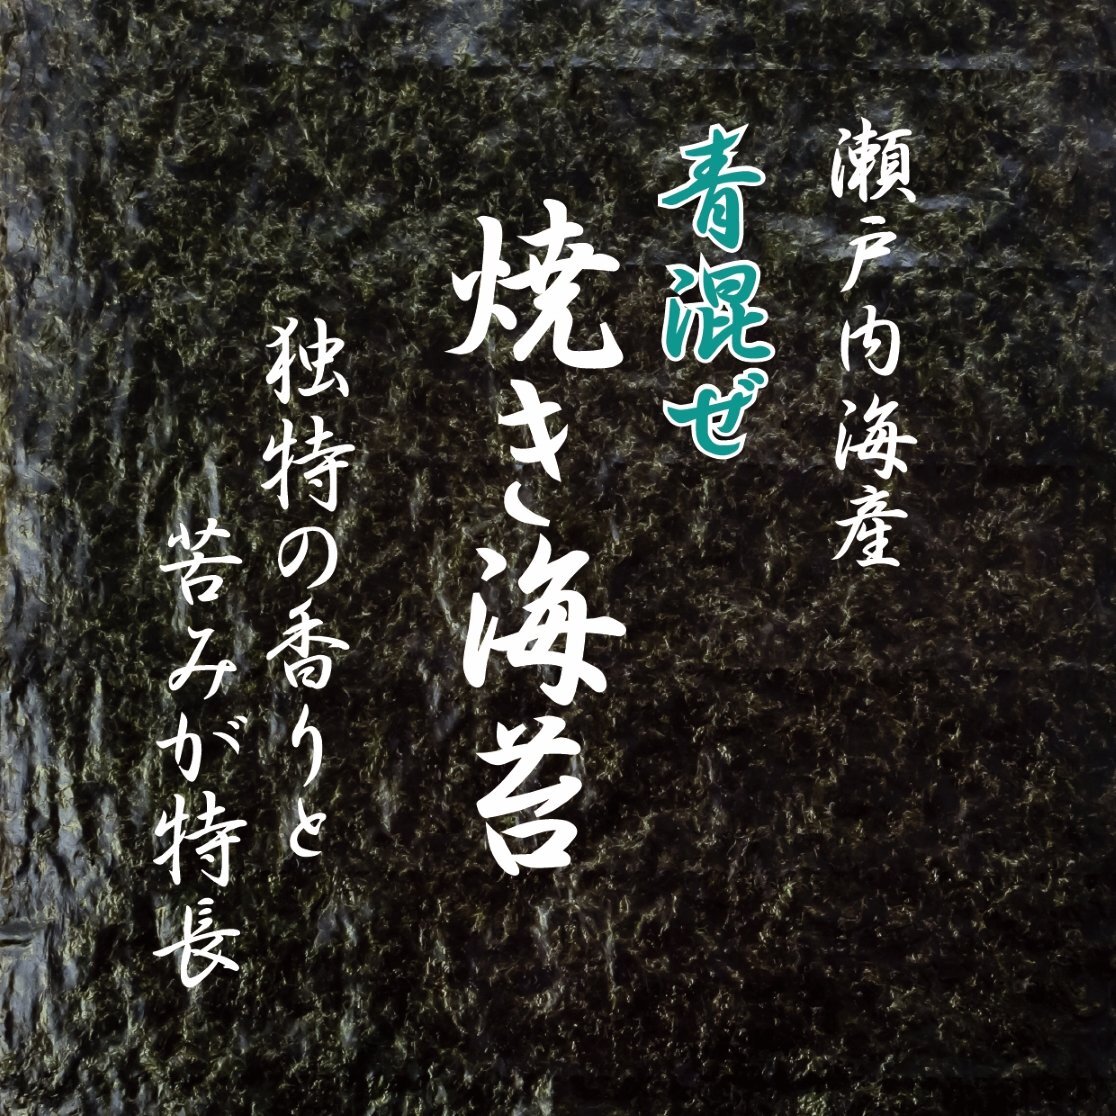 瀬戸内海産
青混ぜ
焼き海苔
独特の香りと
苦みが特長